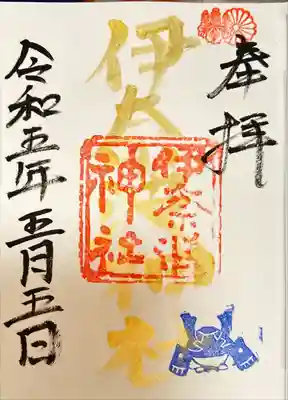 奉拝
伊奈神社
伊奈神社
令和五年五月五日